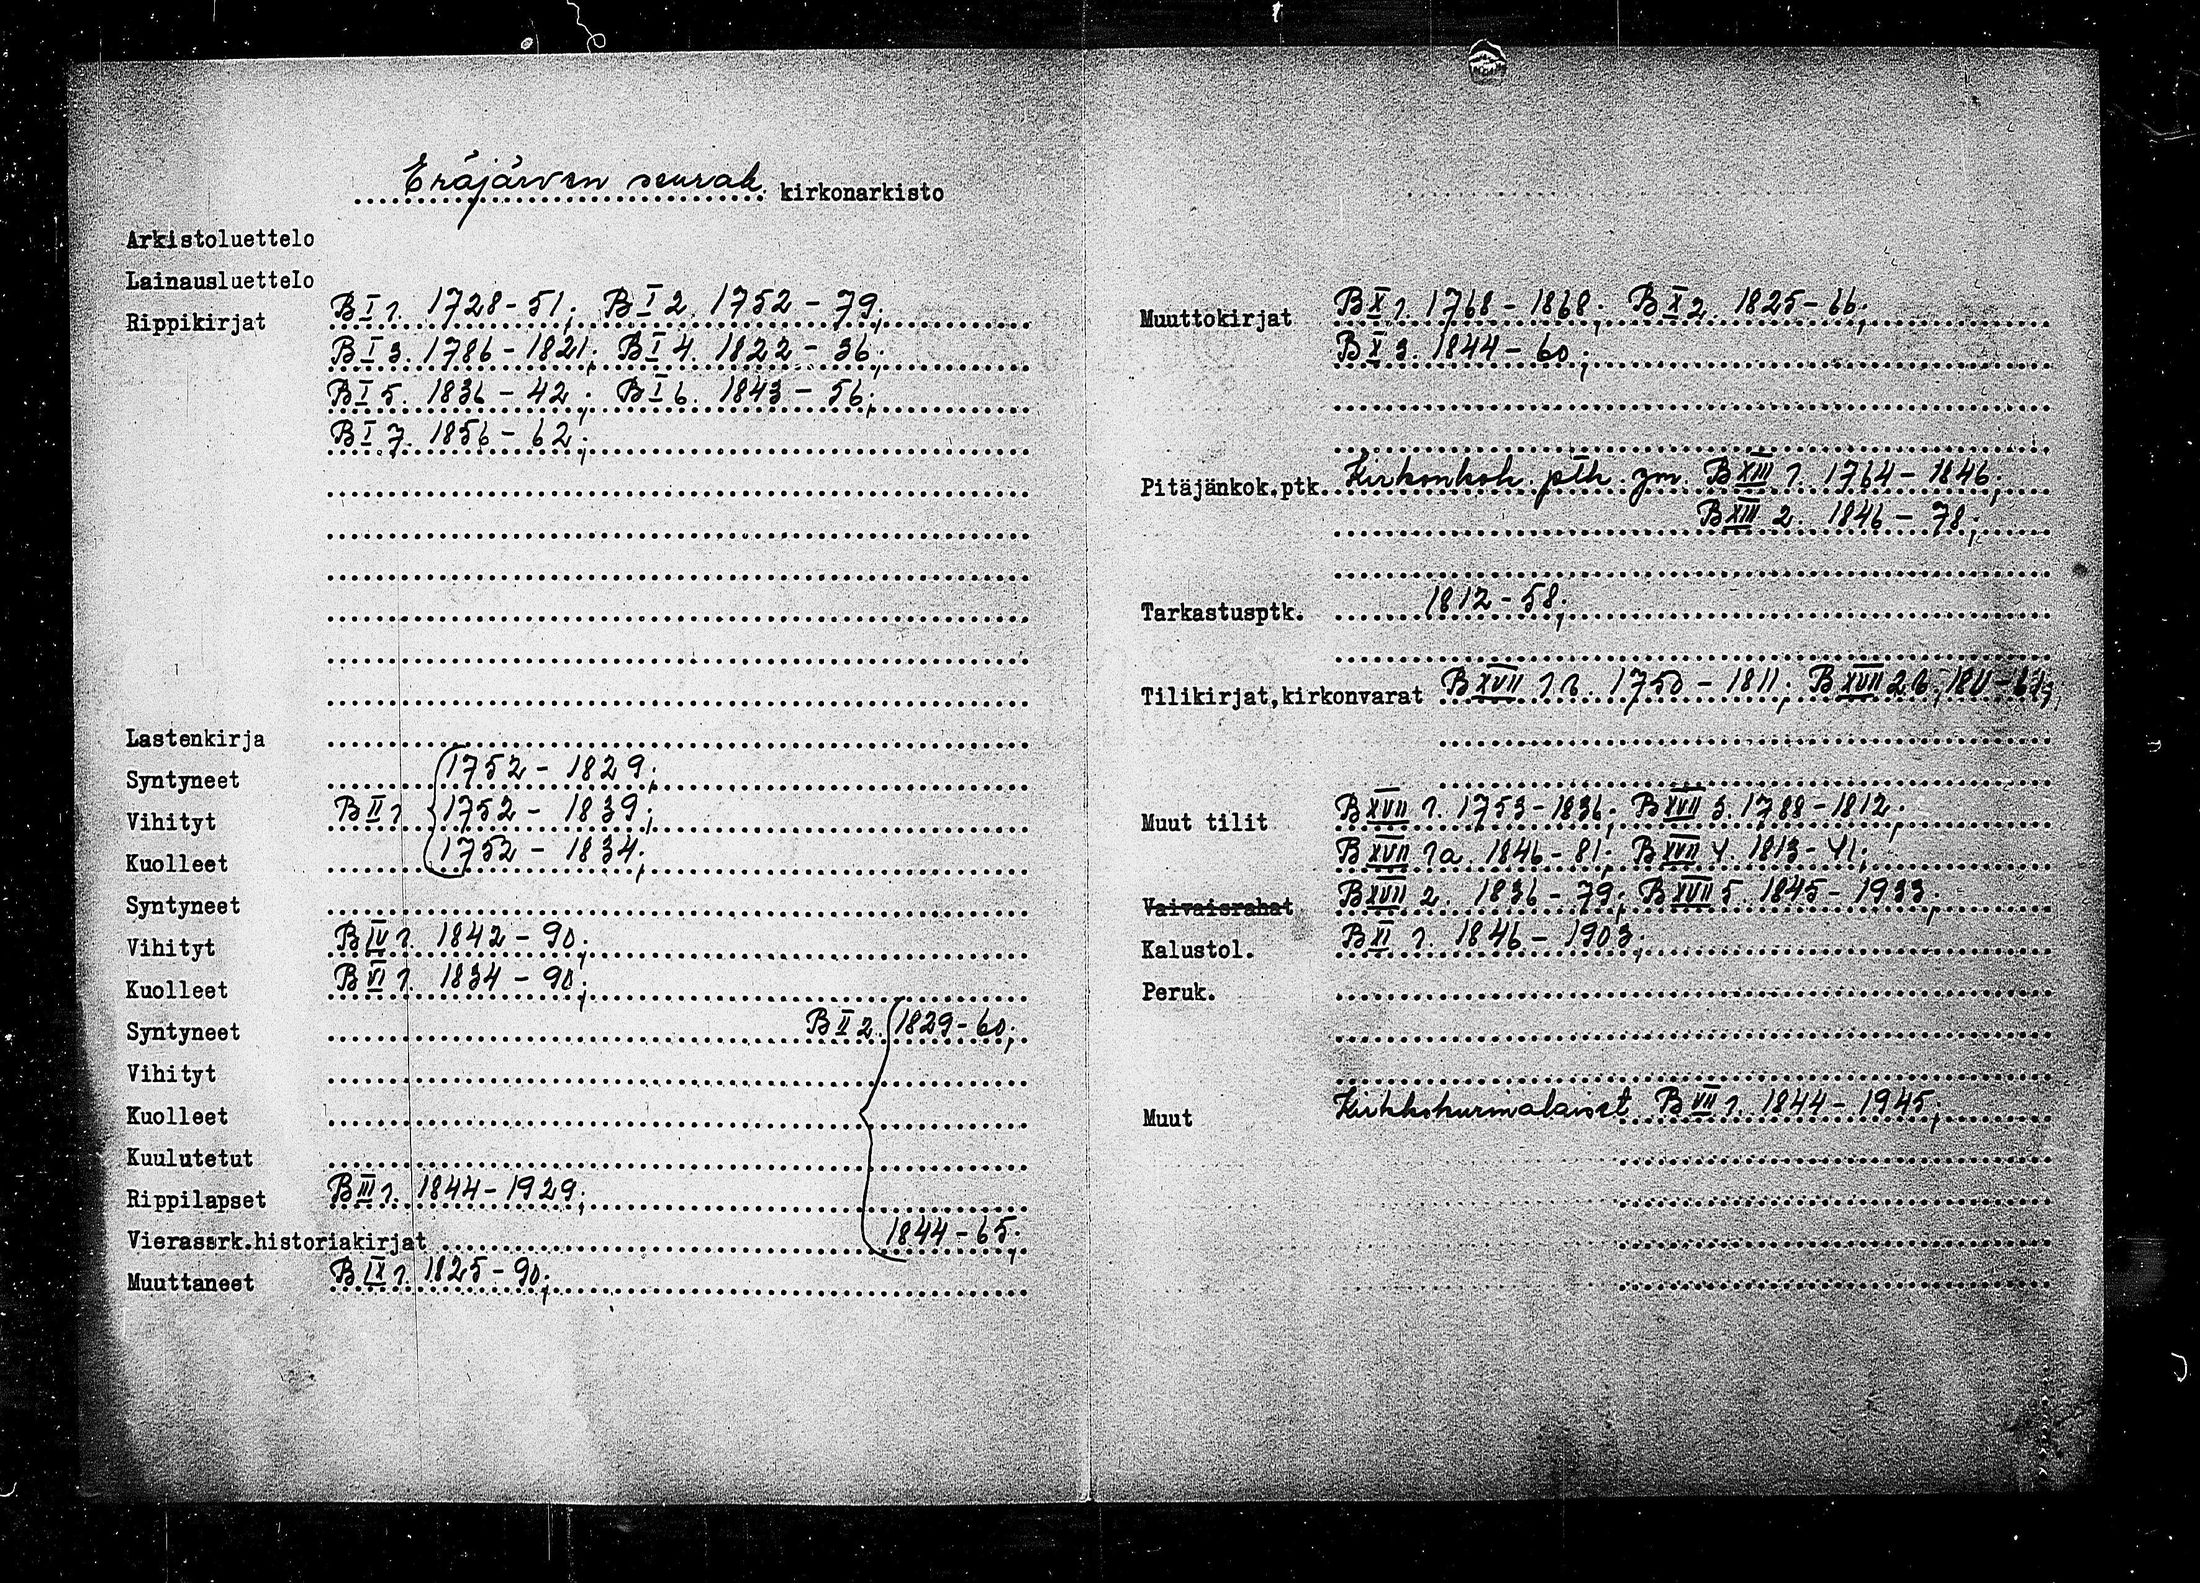 Eräjärven seurak. kirkonarkisto
Arkistoluettelo
Lainausluettelo
Rippikirjat B I 1. 1728-51; B I 2. 1752-79;
B I 3. 1786-1821; B I 4. 1822-36;
B I 5. 1836-42; B I 6. 1843-56;
B I 7. 1856-62;
Lastenkirja
Syntyneet 1752-1829;
Vihityt B II 1 1752-1839;
Kuolleet 1752-1834;
Syntyneet
Vihityt B IV 1. 1842-90;
Kuolleet B VI 1. 1834-90;
Syntyneet B II 2. 1829-60;
Vihityt
Kuolleet
Kuulutetut
Rippilapset B III 1. 1844-1929;
Vierassrk.historiakirjat 1844-65;
Muuttaneet B IX 1. 1825-90;
Muuttokirjat B X 1. 1768-1868; B X 2. 1825-66;
B X 3. 1844-60;
Pitäjänkok.ptk. Kirkonkok. ptk. ym. B XIII 1. 1764-1846;
B XIII 2. 1846-78;
Tarkastusptk. 1812-58;
Tilikirjat,kirkonvarat B XVII 1 b. 1750-1811; B XVII 2 b. 1811-
Muut tilit B XVII 1. 1753-1836; B XVII 3. 1788-1812;
B XVII 1a. 1846-81; B XVII 4. 1813-41;
Vaivaisrahat B XVII 2. 1836-79; B XVII 5. 1845-1933;
Kalustol. B XI 1. 1846-1903;
Peruk.
Muut Kirkkokurinalaiset B VII 1. 1844-1945;